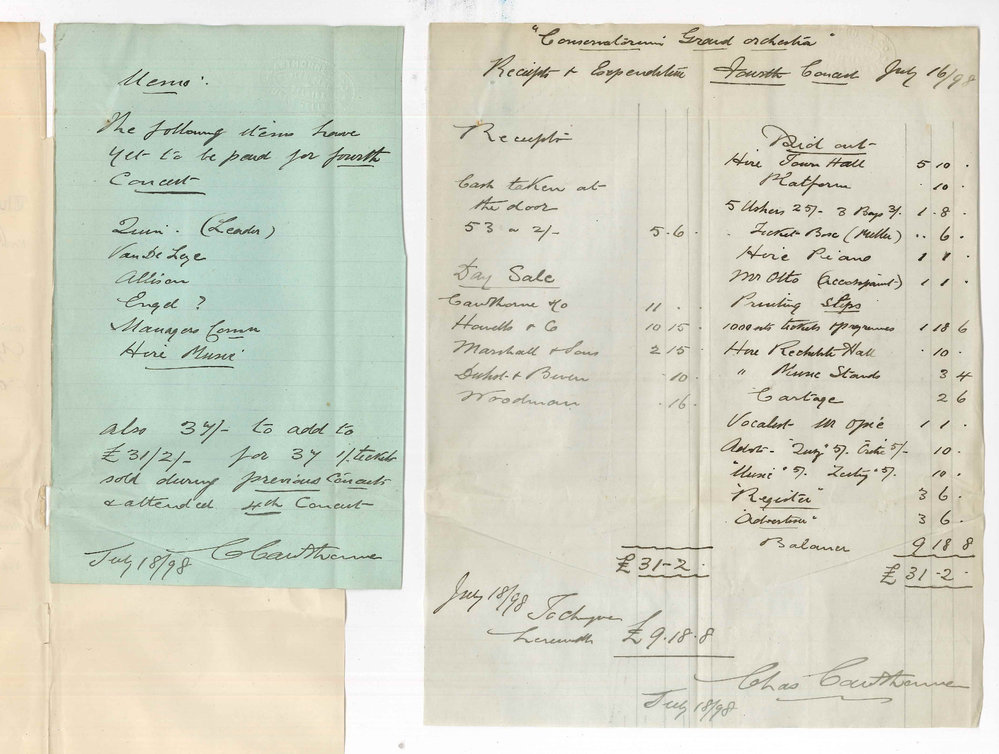 Memo:
The following items have
yet to be paid for fourth
Concert
(Leader)
Van De
Allison
Engel ?
Managers Comm
Hire Music
also 37/- to add to
£31/2/- for 37 1/. tickets
sold during previous Concerts
& attended 4th Concert
July 18/98 C Cawthorne
"Conservatorium Grand Orchestra"
Receipts & Expenditure Fourth Concert July 16/98
Receipts
Cash taken at
the door
53 a 2/- 5.6.
Day Sale
Cawthorne & Co 11 .
Howells & Co 10 15 .
Marshall & Sons 2 15 .
& Biven . 10 .
Woodman . 16 .
£31-2.
Paid out
Hire Town Hall 5 10 .
Platform . 10 .
5 Ushers 25/- 3 Boys 3/. 1 . 8 .
" Ticket Box (Muller) .. 6 .
Hire Piano 1 1 .
Mr Otto (accompanist) 1 1 .
Printing Slips
1000 tickets & programmes 1 18 6
Hire Rechabite Hall . 10 .
" Music Stands 3 4
Cartage 2 6
Vocalist Mr Opie 1 1 .
Advts - "Quiz" 5/. "Critic" 5/- . 10 .
"Music" 5/. 5/. . 10 .
"Register" 3 6 .
"Advertiser" 3 6 .
Balance 9 18 8
£31-2.
July 18/98 To cheque
herewith £9.18.8
Chas Cawthorne
July 18/98